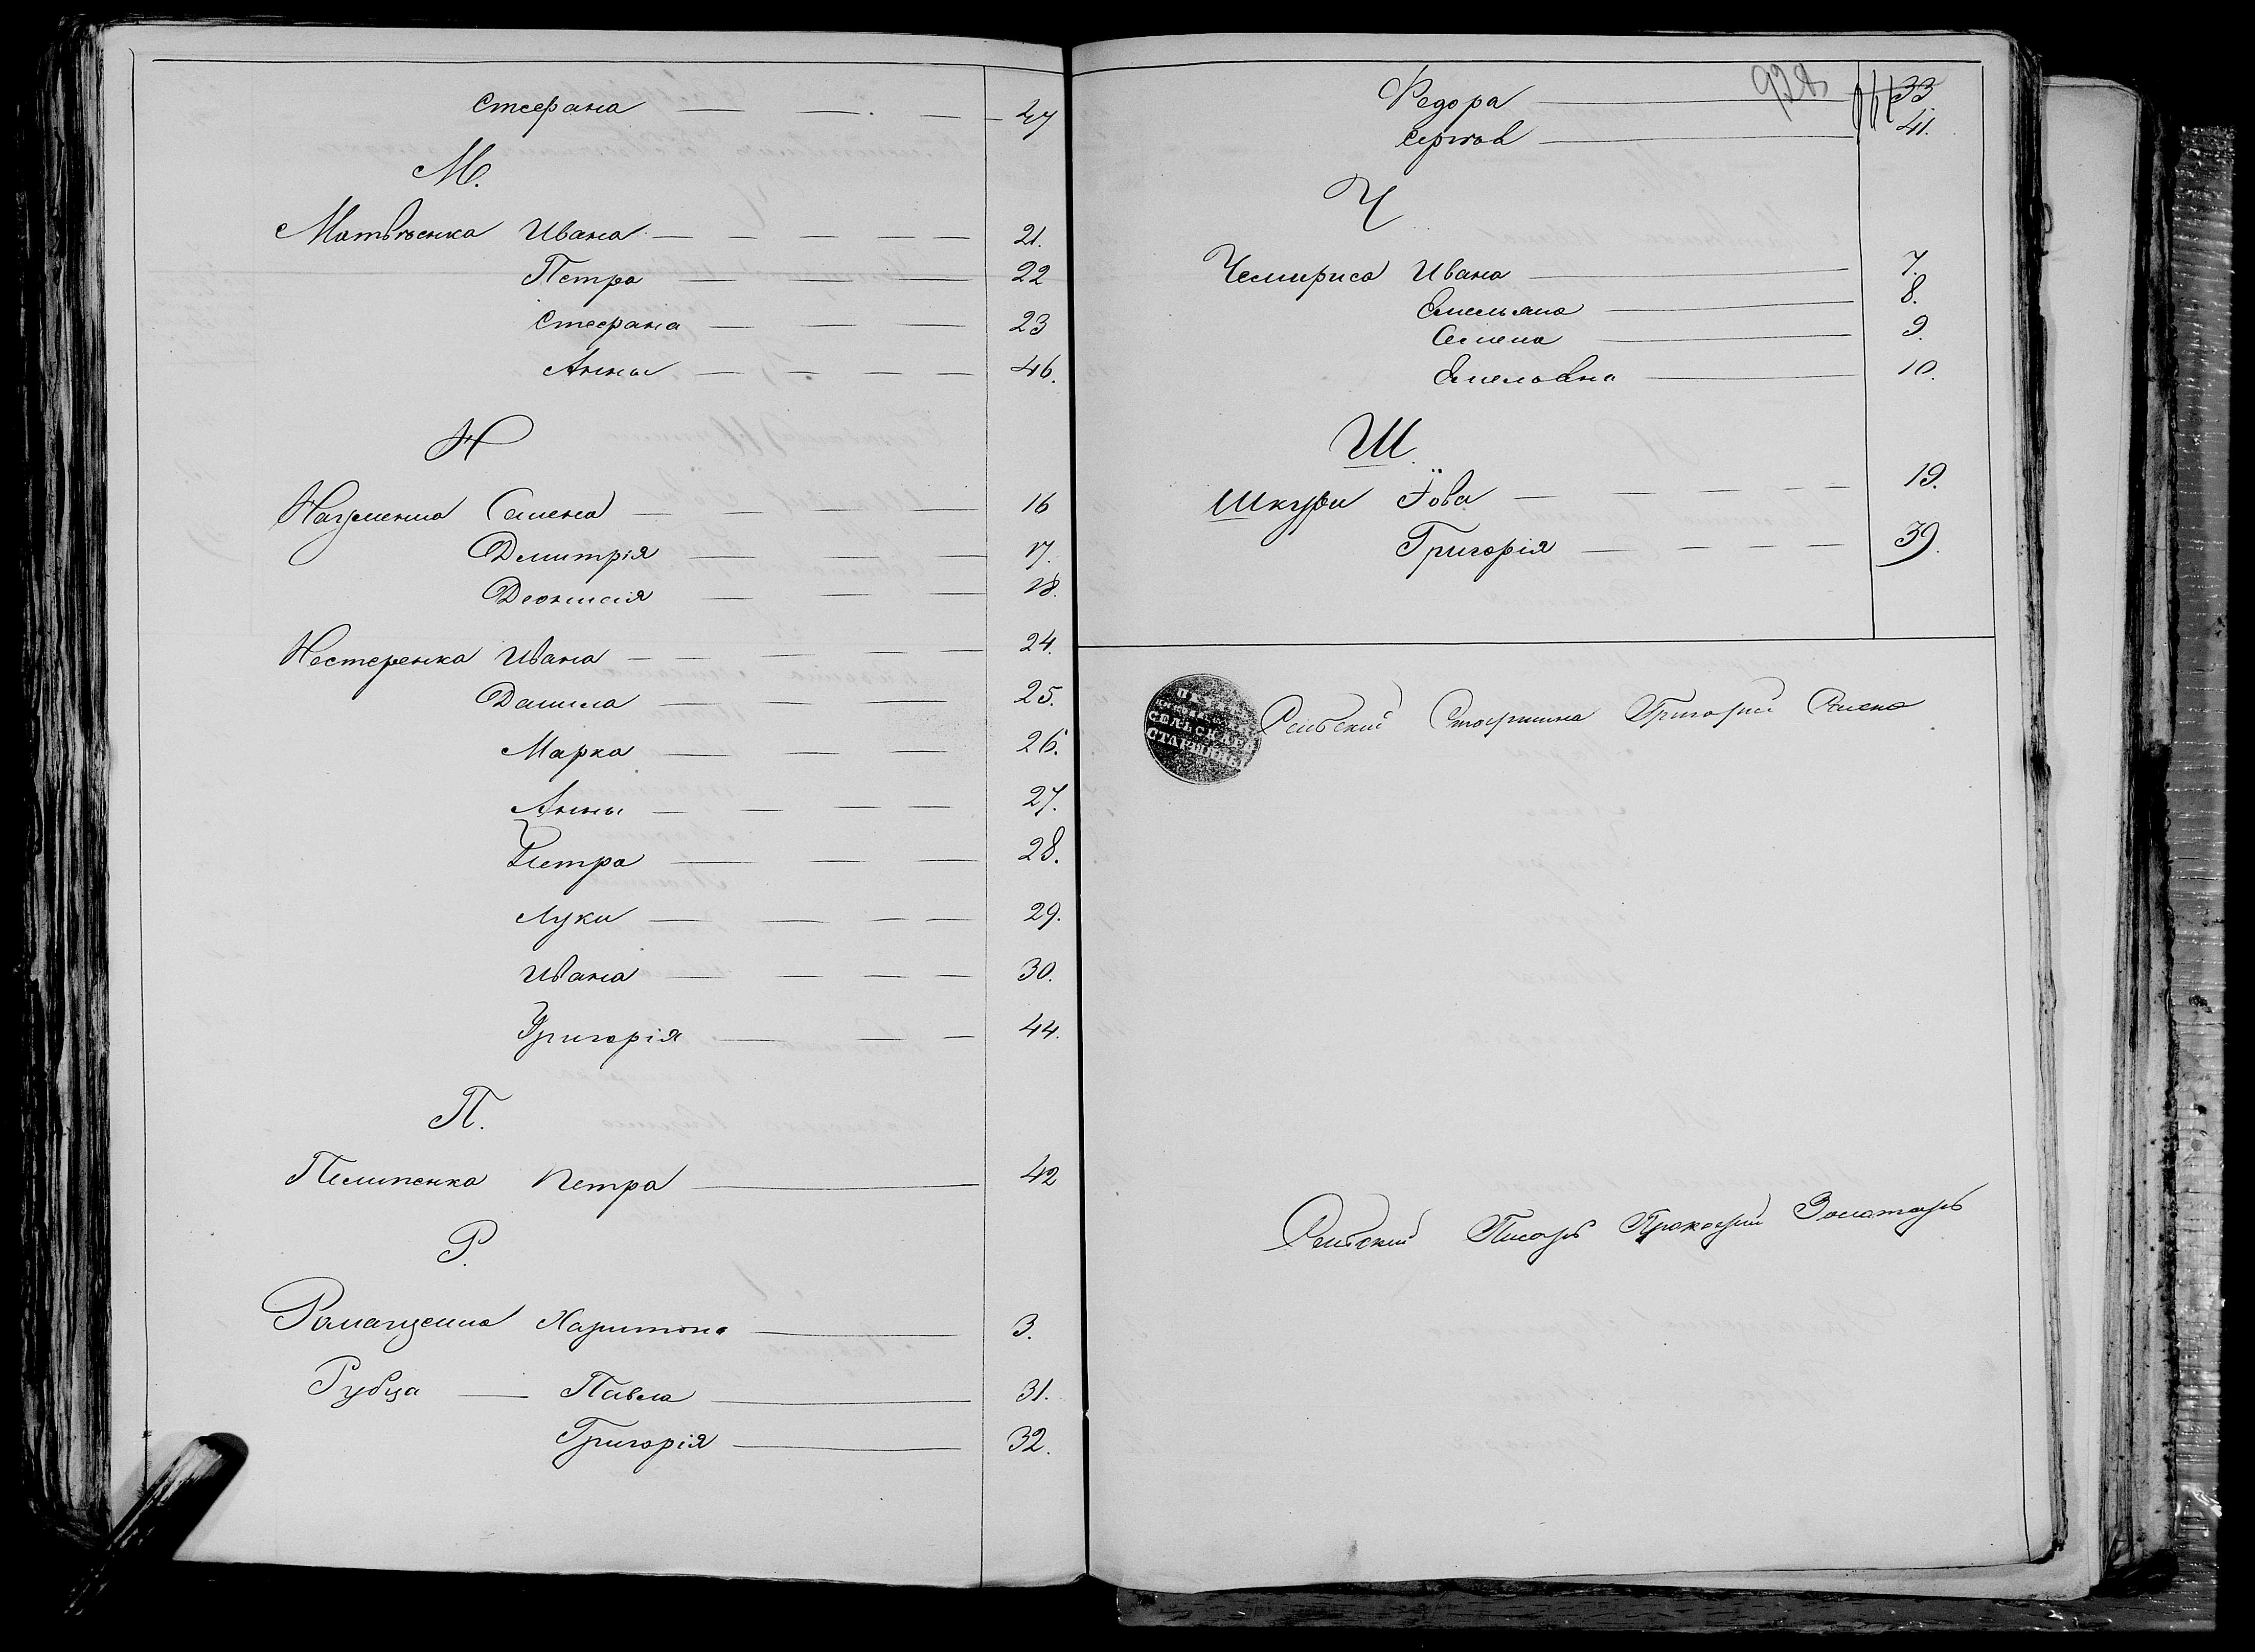 Стефана — — — 47
М.
Матвѣенка Ивана — — — — — 21.
Петра — — — — 22
Стефана — — — — 23
Анны — — — — — 46.
Н
Науменка Семена — — — — — 16
Дмитрія — — — — 17.
Деонисія — — — — 18.
Нестеренка Ивана — — — — — 24.
Данила — — — — 25.
Марка — — — — 26.
Анны — — — — 27.
Петра — — — 28.
Луки — — — — — 29.
Ивана — — — — — 30.
Григорія — — — — 44.
П.
Пелипенка Петра — 42
Р.
Романенка Харитона — 3.
Рубца — Павла — 31.
Григорія — 32.
928
Федора — 33
Сергѣя — 41.
Ч
Чемириса Ивана — 7.
Емельяна — 8.
Семена — 9.
Емельяна — 10.
Ш.
Шкуры Іова — — — — — 19.
Григорія — — — — 39.
СЕЛЬСКАГО
СТАРШИНЫ
Сельский Старшина Григорий
Сельский Писарь Прокофий Золотарь